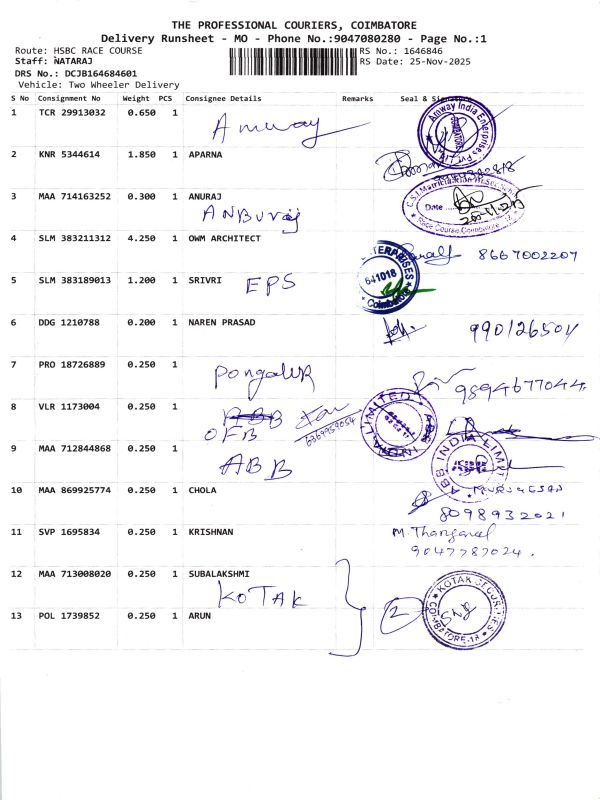 THE PROFESSIONAL COURIERS, COIMBATORE
Delivery Runsheet - MO - Phone No.:9047080280 - Page No.:1
Route: HSBC RACE COURSE RS No.: 1646846
Staff: NATARAJ RS Date: 25-Nov-2025
DRS No.: DCJB164684601
Vehicle: Two Wheeler Delivery
S No Consignment No Weight PCS Consignee Details Remarks Seal & Signature
1 TCR 29913032 0.650 1 Amway
Amway India Enterprises Pvt. Ltd
2 KNR 5344614 1.850 1 APARNA
3 MAA 714163252 0.300 1 ANURAJ
ANBuraj
C.S.I. Matriculation Hr. Sec. School
Date
Race Course, Coimbatore - 18
4 SLM 383211312 4.250 1 OWM ARCHITECT
8667002207
5 SLM 383189013 1.200 1 SRIVRI EPS
ERPRISES
641018
Coimbatore
6 DDG 1210788 0.200 1 NAREN PRASAD
990126504
7 PRO 18726889 0.250 1
PongaluR
9894677044
8 VLR 1173004 0.250 1
OFB
6369959054
ABB INDIA LIMITED
9 MAA 712844868 0.250 1
ABB
ABB INDIA LIMITED
10 MAA 869925774 0.250 1 CHOLA
MURUGESAN
8098932021
11 SVP 1695834 0.250 1 KRISHNAN
M. Thangavel
9047787024.
12 MAA 713008020 0.250 1 SUBALAKSHMI
KOTAK
KOTAK SECURITIES
COIMBATORE-18
13 POL 1739852 0.250 1 ARUN
2